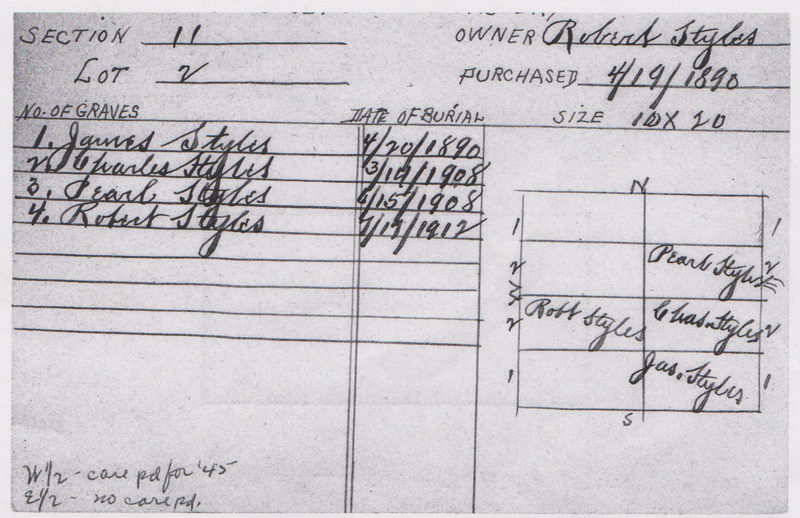 SECTION 11 OWNER Robert Styles
LOT 2 PURCHASED 4/19/1890
NO. OF GRAVES DATE OF BURIAL SIZE 10 X 20
1. James Styles 4/20/1890
2. Charles Styles 3/19/1908
3. Pearl Styles 6/15/1908
4. Robert Styles 7/19/1912
N
1 1
2 Pearl Styles 2
W E
2 Robt Styles Chas. Styles 2
1 Jas. Styles 1
S
W 1/2 - care pd for '45
E 1/2 - no care pd.